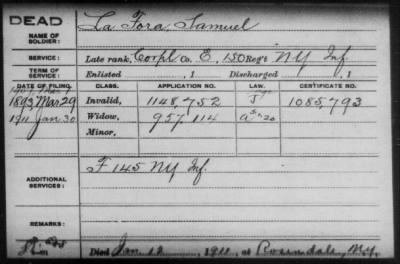 DEAD
NAME OF SOLDIER:
La Fora, Samuel
SERVICE:
Late rank, Corpl Co. E, 150 Reg't NY Inf.
TERM OF SERVICE:
Enlisted , 1 Discharged , 1
DATE OF FILING. CLASS. APPLICATION NO. LAW. CERTIFICATE NO.
1893, Mar 29 Invalid, 1148,752 1085,793
1911 Jan 30 Widow, 957 114
Minor,
ADDITIONAL SERVICES:
F 145 NY Inf.
REMARKS:
Died Jan 12, 1911, at Rosendale, NY.